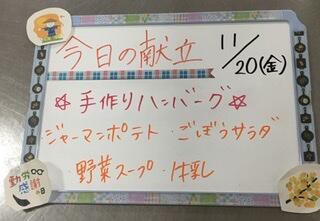 今日の献立 11/20(金)
☆手作りハンバーグ☆
ジャーマンポテト・ごぼうサラダ
野菜スープ・牛乳
勤労
感謝
の日